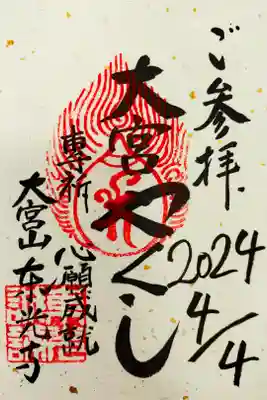 ご参拝
2024
4/4
大宮やくし
専祈 心願成就
大宮山 東光寺